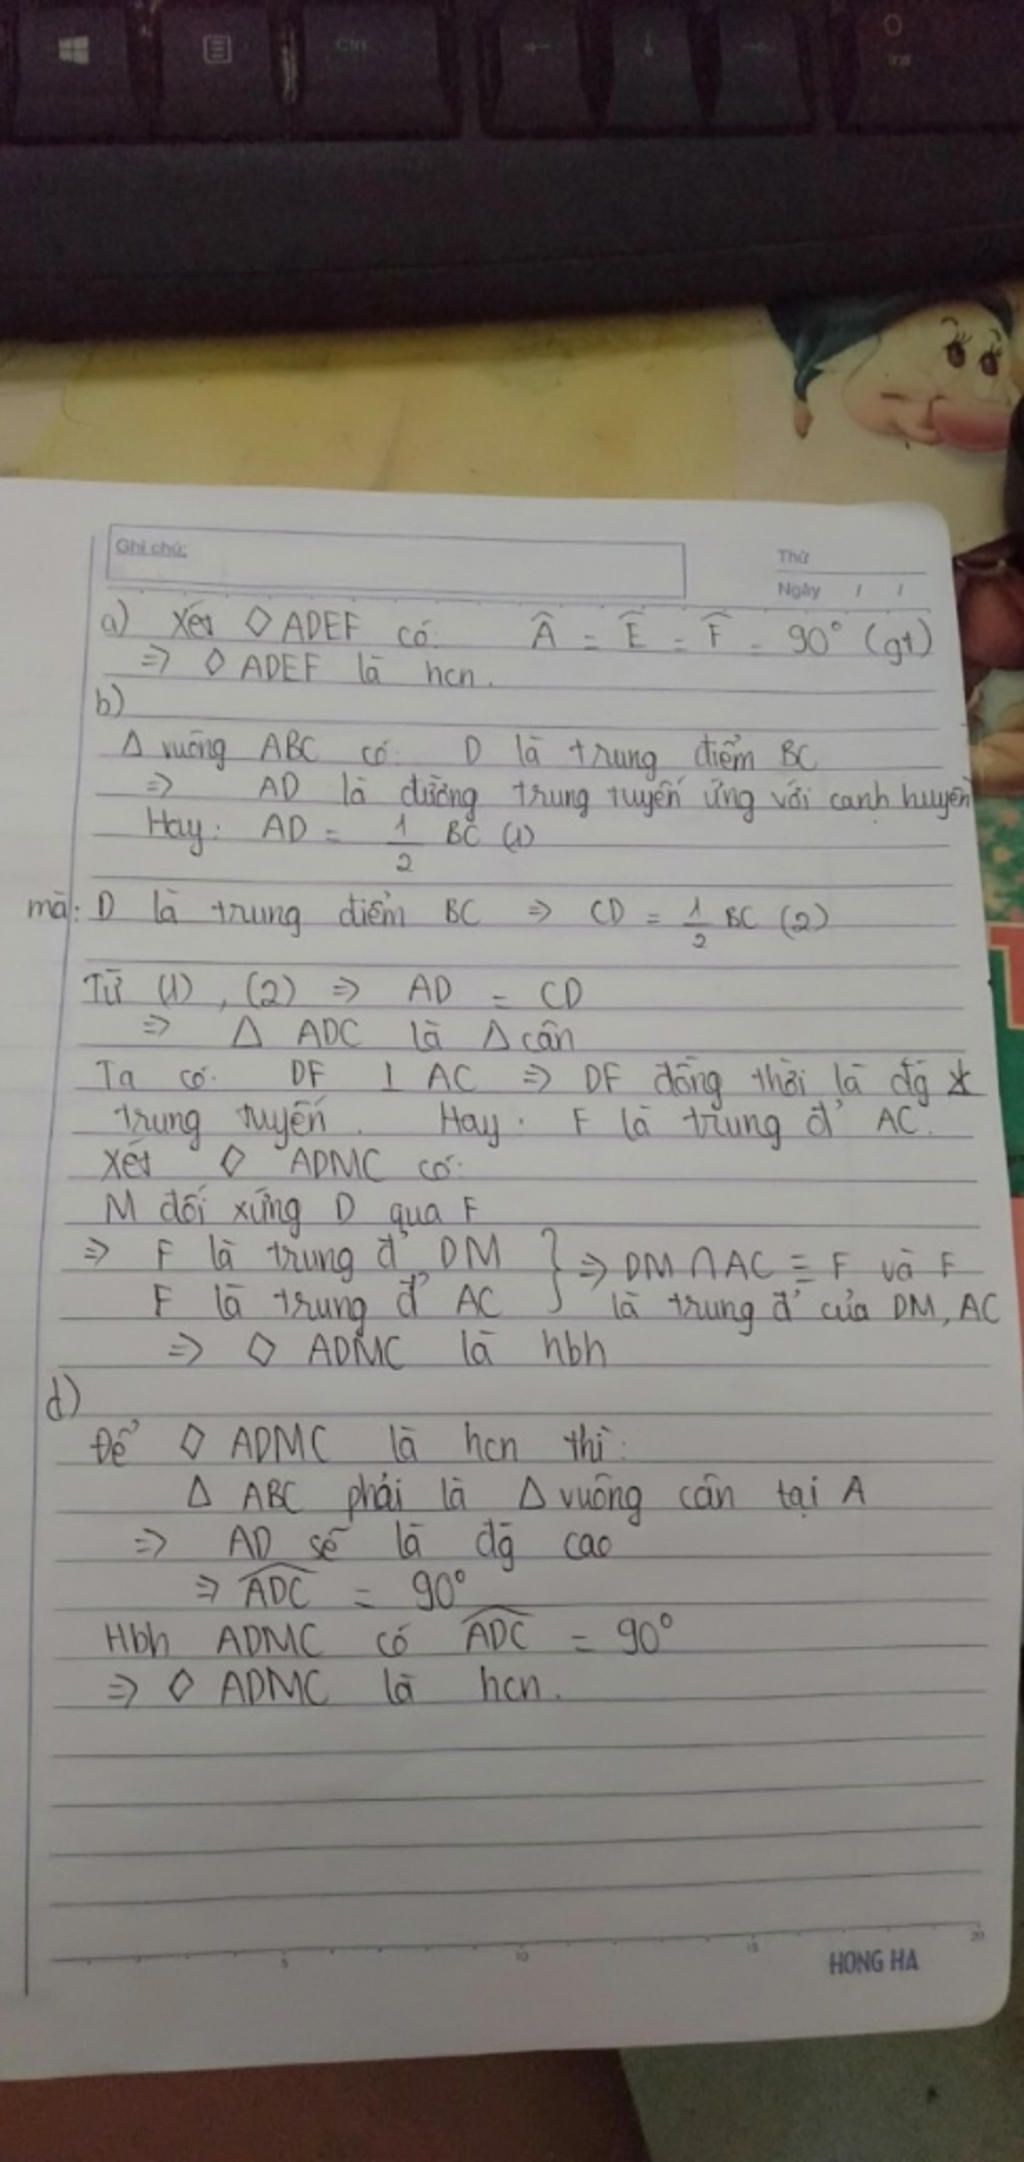 Ctrl
Ghi chú:
Thứ
Ngày / /
a) Xét ◇ ADEF có: Â = Ê = F̂ = 90° (gt)
⇒ ◇ ADEF là hcn.
b)
Δ vuông ABC có: D là trung điểm BC
⇒ AD là đường trung tuyến ứng với cạnh huyền
Hay: AD = 1/2 BC (1)
mà: D là trung điểm BC ⇒ CD = 1/2 BC (2)
Từ (1), (2) ⇒ AD = CD
⇒ Δ ADC là Δ cân
Ta có: DF ⊥ AC ⇒ DF đồng thời là đg
trung tuyến. Hay: F là trung đ' AC.
Xét ◇ ADMC có:
M đối xứng D qua F
⇒ F là trung đ' DM } ⇒ DM ∩ AC ≡ F và F
F là trung đ' AC là trung đ' của DM, AC
⇒ ◇ ADMC là hbh
d)
Để ◇ ADMC là hcn thì:
Δ ABC phải là Δ vuông cân tại A
⇒ AD sẽ là đg cao
⇒ ADC = 90°
Hbh ADMC có ADC = 90°
⇒ ◇ ADMC là hcn.
5 10 15 20
HONG HA